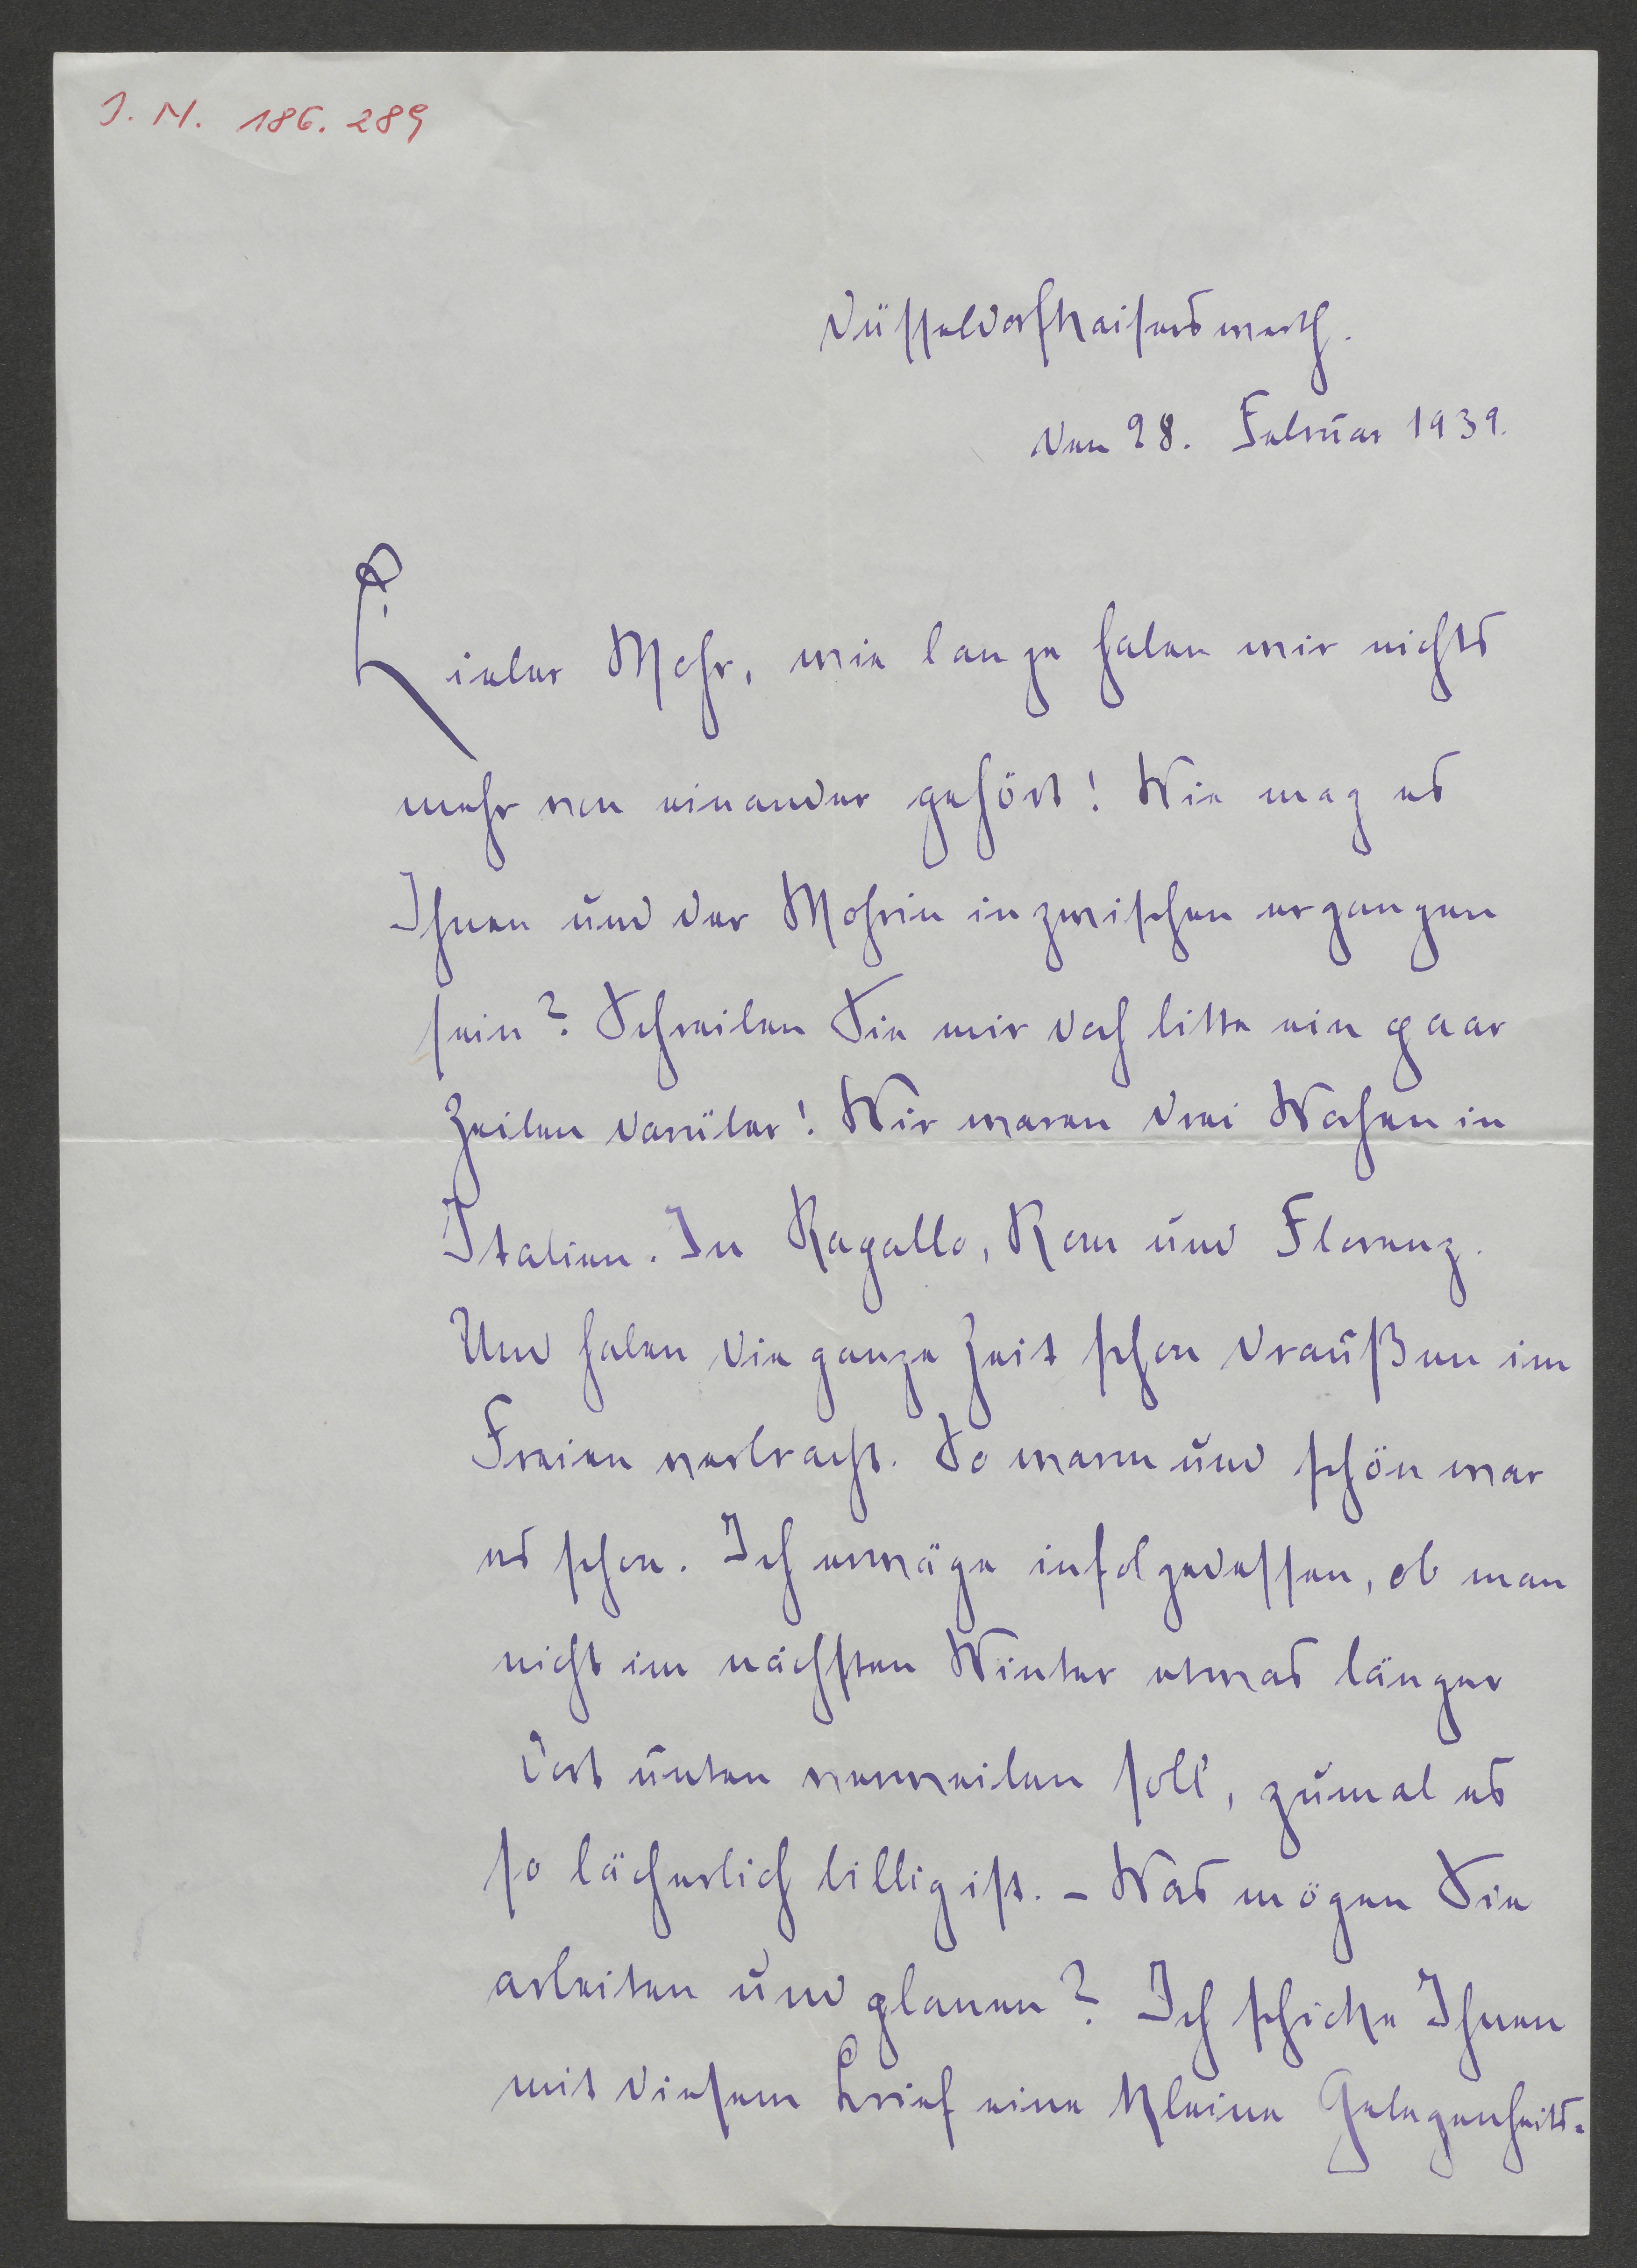 I. N. 186.289
Düsseldorfkaiserswerth.
Den 28. Februar 1939.
Lieber Mohr, wie lange haben wir nichts
mehr von einander gehört! Wie mag es
Ihnen und der Mohrin inzwischen ergangen
sein? Schreiben Sie mir doch bitte ein paar
Zeilen darüber! Wir waren drei Wochen in
Italien. In Rapallo, Rom und Florenz.
Und haben die ganze Zeit schon draußen im
Freien verbracht. So warm und schön war
es schon. Ich erwäge infolgedessen, ob man
nicht im nächsten Winter etwas länger
dort unten verweilen soll, zumal es
so lächerlich billig ist. – Was mögen Sie
arbeiten und planen? Ich schicke Ihnen
mit diesem Brief eine kleine Gelegenheits-